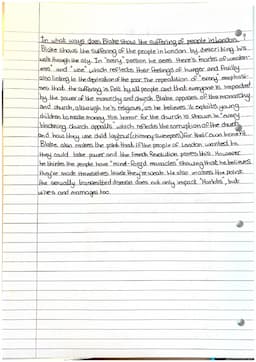 In what ways does Blake show the suffering of people in London?
Blake shows the suffering of the people in London by describing his
walk through the city. In "every" person he sees there's marks of weakn-
ess" and "woe" which reflects their feelings of hunger and frailty
also linking to the deprivation of the poor. The repetition of "every" emphasis-
es that the suffering is felt by all people and that everyone is impacted
by the power of the monarchy and church. Blake opposes of the monarchy
and church, although he's religious, as he believes it exploits young
children to make money. His horror for the church is shown in "every
blackning church appalls" which reflects the corruption of the church
and how they use child labour (chimney sweepers) for their own benefit.
Blake also makes the point that if the people of London wanted to
they could take power and the French Revolution proves this. However
he thinks the people have "mind-forged manacles" showing that he believes
they've made themselves believe they're weak. He also makes the point
the sexually transmitted disease does not only impact "Harlots", but
wives and marriages too.